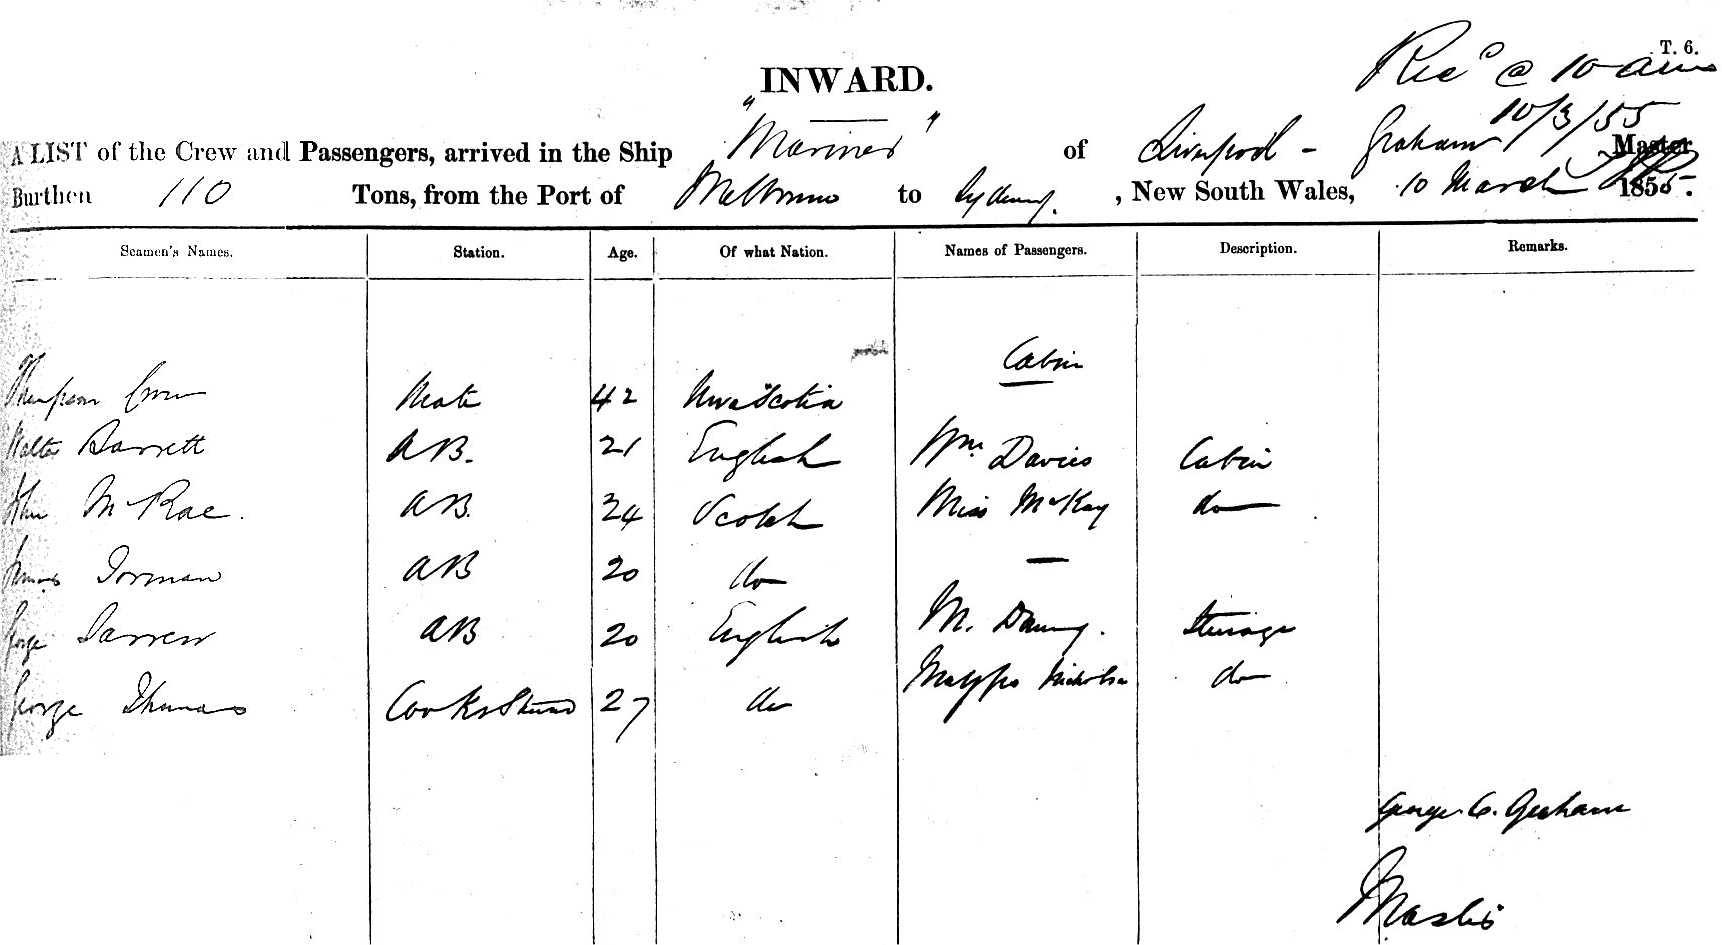 T. 6.
Rec^d @ 10 am
10/3/55
INWARD.
A LIST of the Crew and Passengers, arrived in the Ship "Mariner" of Liverpool - Graham Master
Burthen 110 Tons, from the Port of Melbourne to Sydney, New South Wales, 10 March 1855.
Seamen's Names. Station. Age. Of what Nation. Names of Passengers. Description. Remarks.
Cabin
Thompson Mate 42 Nova Scotia
Walter Barrett AB. 21 English Wm. Davies Cabin
John McRae. AB. 24 Scotch Miss McKay do
Torman AB 20 do —
George AB 20 English M. Steerage
George Thomas Cook & Steward 27 do Nicholson do
George C. Graham
Master